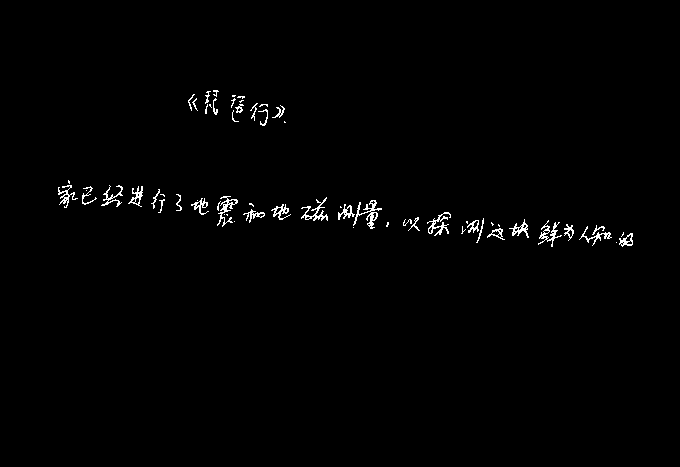 《琵琶行》.
家已经进行了地震和地磁测量，以探测这块鲜为人知的